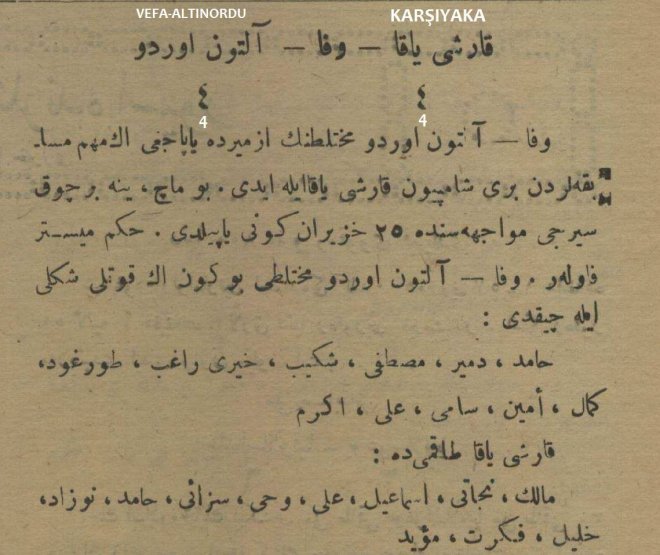 VEFA-ALTINORDU KARŞIYAKA
قارشی یاقا — وفا — آلتون اوردو
٤ ٤
4 4
وفا — آلتون اوردو مختلطنك ازمیرده یاپاجغی اك مهم مسا-
بقه‌لردن بری شامپیون قارشی یاقا ایله ایدی . بو ماچ ، ینه بر چوق
سیرجی مواجهه‌سنده ٢٥ خزیران كونی یاپیلدی . حكم میستر
فاولەر . وفا — آلتون اوردو مختلطی بو كون اك قوتلی شكلی
ایله چیقدی :
حامد ، دمیر ، مصطفی ، شكیب ، خیری راغب ، طورغود،
كمال ، أمین ، سامی ، علی ، اكرم
قارشی یاقا طاقمی‌ده :
مالك ، نجاتی ، اسماعیل ، علی ، وحی ، سزائی ، حامد ، نوزاد،
خلیل ، فكرت ، مؤید